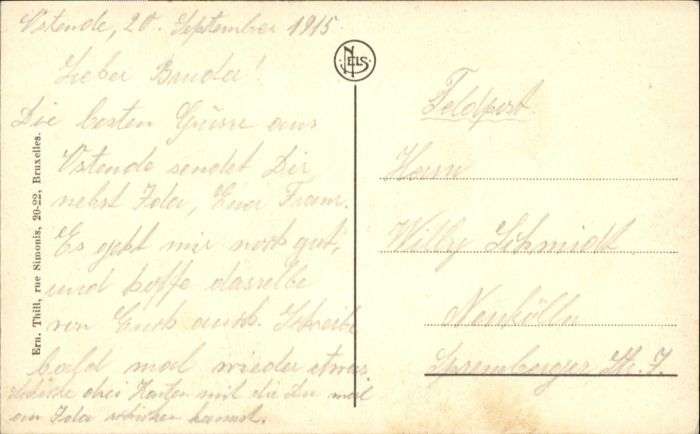 Ostende, 20. September 1915
Lieber Bruder!
Die besten Grüsse aus
Ostende sendet Dir
nebst Ida, Euer Franz.
Es geht mir noch gut,
und hoffe dasselbe
von Euch auch. Schreibe
bald mal wieder etwas
drei Karten mit die Du mal
an Ida schicken kannst.
Ern. Thill, rue Simonis, 20-22, Bruxelles.
NELS
Feldpost
Herrn
Willy Schmidt
Neukölln
Spremberger Str. 7.